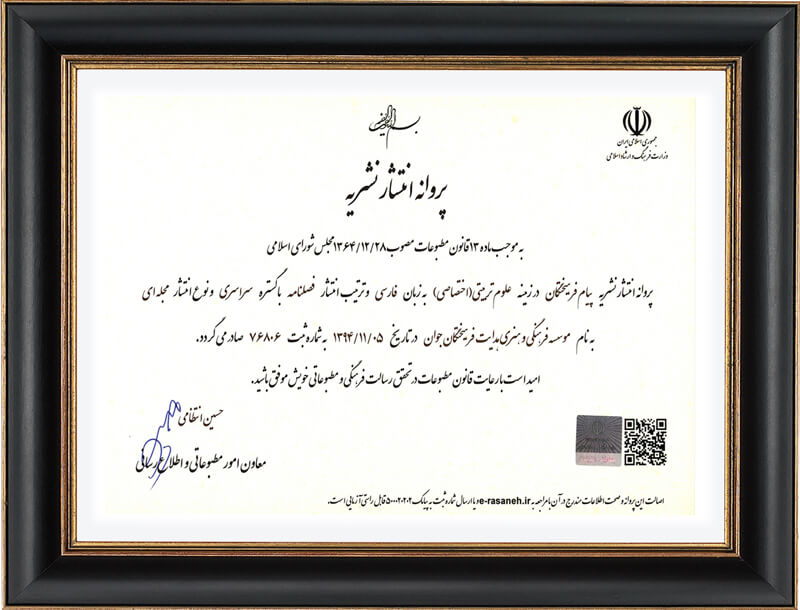 بسم الله الرحمن الرحیم
جمهوری اسلامی ایران
وزارت فرهنگ و ارشاد اسلامی
پروانه انتشار نشریه
به موجب ماده ۱۳ قانون مطبوعات مصوب ۱۳۶۴/۱۲/۲۸ مجلس شورای اسلامی
پروانه انتشار نشریه پیام فریختگان در زمینه علوم تربیتی (اختصاصی) به زبان فارسی و ترتیب انتشار فصلنامه با گستره سراسری و نوع انتشار مجله ای
به نام موسسه فرهنگی و هنری هدایت فریختگان جوان در تاریخ ۱۳۹۴/۱۱/۰۵ به شماره ثبت ۷۶۸۰۶ صادر می گردد.
امید است با رعایت قانون مطبوعات در تحقق رسالت فرهنگی و مطبوعاتی خویش موفق باشید.
حسین انتظامی
معاون امور مطبوعاتی و اطلاع رسانی
اصالت این پروانه و صحت اطلاعات مندرج در آن با مراجعه به e-rasaneh.ir و یا ارسال شماره ثبت به پیامک ۵۰۰۰۲۰۲۰۲ قابل راستی آزمایی است.